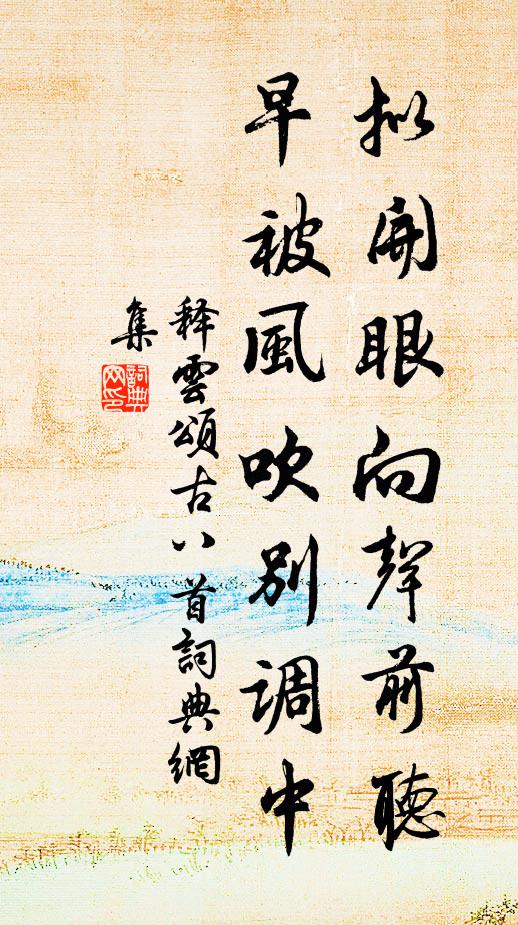 拟開眼向聲前聽
早被風吹別調中
释雲頌古八首詞典網
集
詞典网印